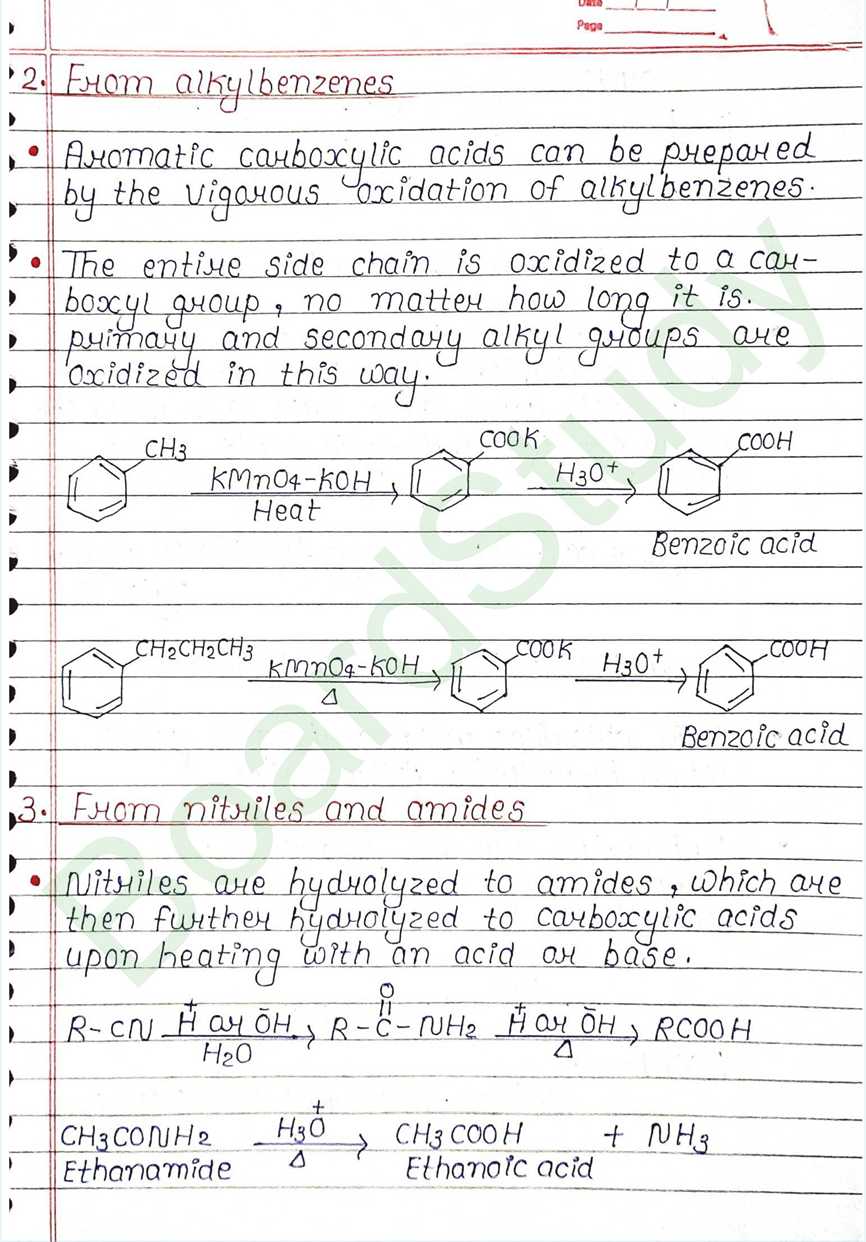 Date
Page
2. From alkylbenzenes
• Aromatic carboxylic acids can be prepared
by the vigorous oxidation of alkylbenzenes.
• The entire side chain is oxidized to a car-
boxyl group, no matter how long it is.
primary and secondary alkyl groups are
oxidized in this way.
CH3 KMnO4-KOH COOK H3O+ COOH
Heat
Benzoic acid
CH2CH2CH3 KMnO4-KOH COOK H3O+ COOH
Δ
Benzoic acid
3. From nitriles and amides
• Nitriles are hydrolyzed to amides, which are
then further hydrolyzed to carboxylic acids
upon heating with an acid or base.
O
R-CN H+ or ŌH R-C-NH2 H+ or ŌH RCOOH
H2O Δ
CH3CONH2 H3O+ CH3COOH + NH3
Δ
Ethanamide Ethanoic acid
BoardStudy